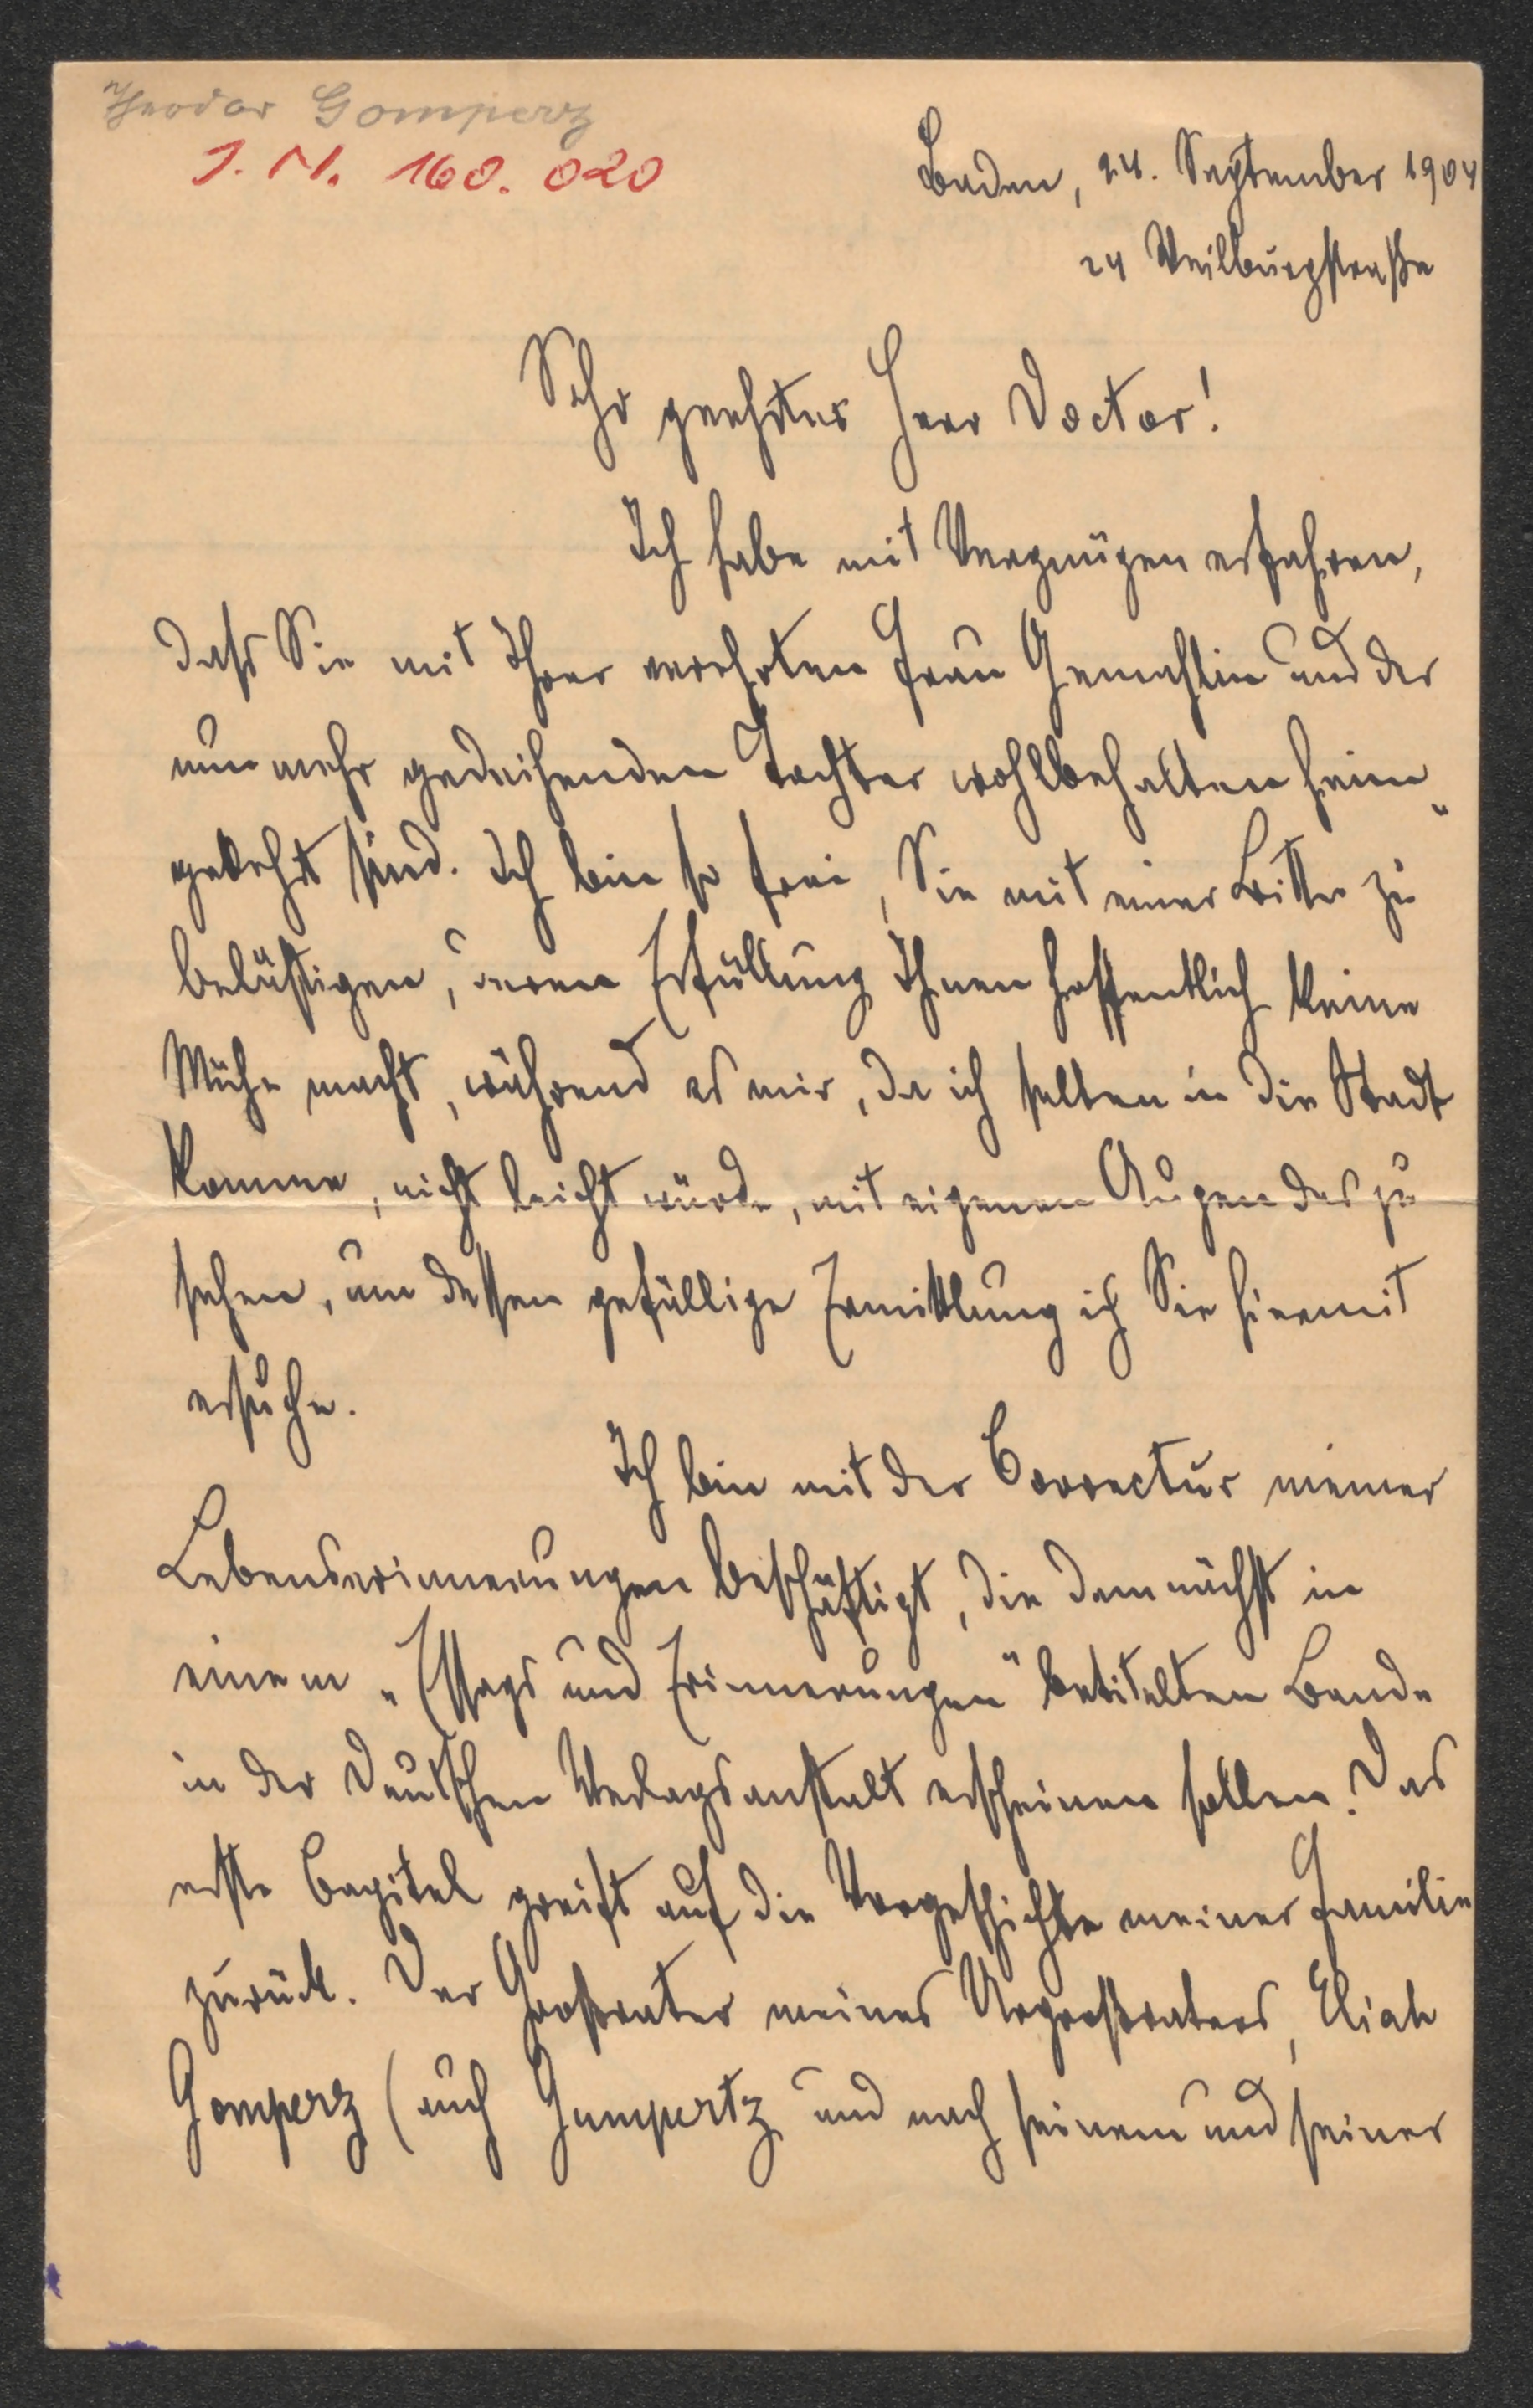 Theodor Gomperz
I. N. 160.020
Baden, 24. September 1904
24 Weilburgstraße
Sehr geehrter Herr Doctor!
Ich habe mit Vergnügen erfahren,
dass Sie mit Ihrer verehrten Frau Gemahlin und der
nunmehr gedeihenden Tochter wohlbehalten heim-
gekehrt sind. Ich bin so frei, Sie mit einer Bitte zu
belästigen, deren Erfüllung Ihnen hoffentlich keine
Mühe macht, während es mir, da ich selten in die Stadt
komme, nicht leicht würde, mit eigenen Augen das zu
sehen, um dessen gefällige Ermittlung ich Sie hiermit
ersuche.
Ich bin mit der Correctur meiner
Lebenserinnerungen beschäftigt, die demnächst in
einem „Essays und Erinnerungen“ betitelten Bande
in der Deutschen Verlagsanstalt erscheinen sollen. Das
erste Capitel greift auf die Vorgeschichte meiner Familie
zurück. Der Großvater meines Urgroßvaters, Eliah
Gomperz (auch Gumpertz und nach seinem und seiner